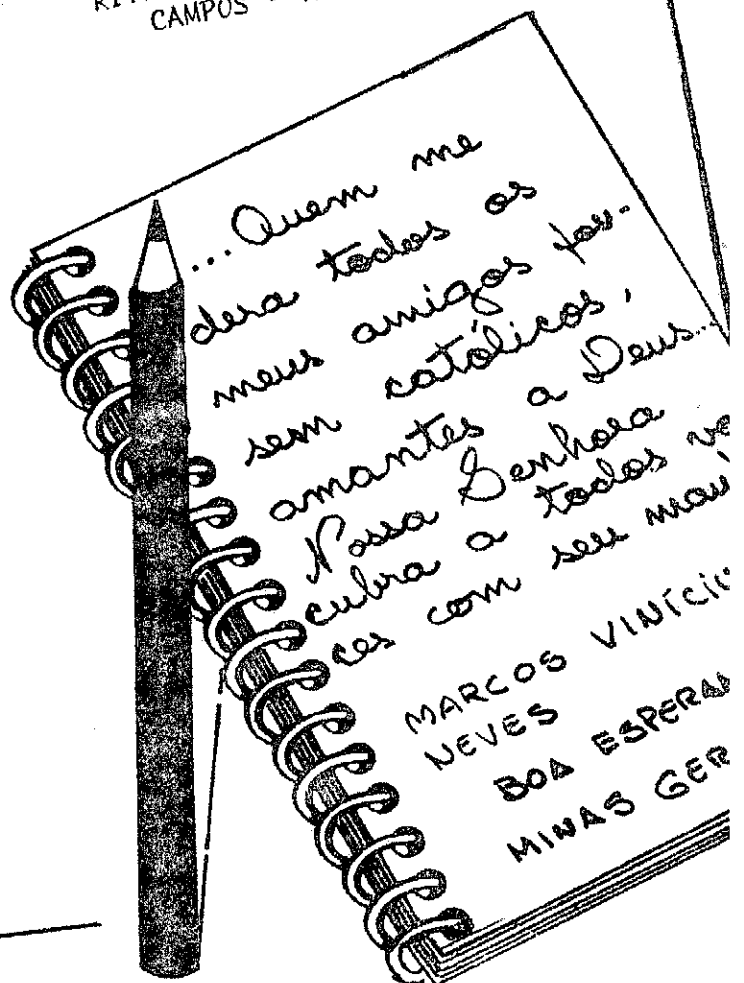 CAMPOS
...Quem me
dera todos os
meus amigos fos-
sem católicos,
amantes a Deus...
Nossa Senhora
cubra a todos vo
ces com seu
MARCOS
NEVES
BOA
MINAS